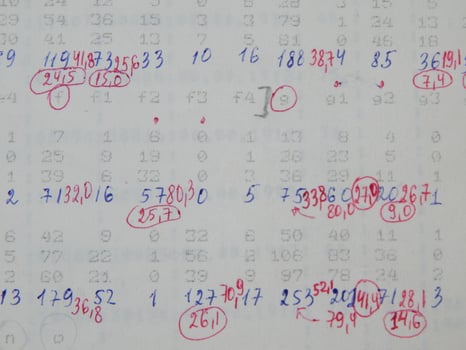 29 54 36 15 3 3 79 1 24 13
30 41 25 13 7 5 81 0 46 18
9 119 41,8 73 25,6 33 10 16 188 38,7 4 85 36 19,1
24,5 15,0 7,4
f f1 f2 f3 f4 ] g g1 g2 g3
1 7 1 6 0 1 13 8 4 0
0 25 9 19 0 1 38 23 5 0
1 39 6 33 0 3 36 29 11 1
2 71 32,0 16 57 80,3 0 5 75 33,8 60 27,0 20 26,7 1
25,7 80,0 9,0
6 42 9 0 32 6 50 40 11 1
5 77 22 1 56 2 106 83 36 0
2 60 21 0 39 9 97 78 24 2
13 179 36,8 52 1 127 70,9 17 253 52,1 201 41,4 71 28,1 3
26,1 79,4 14,6
n o